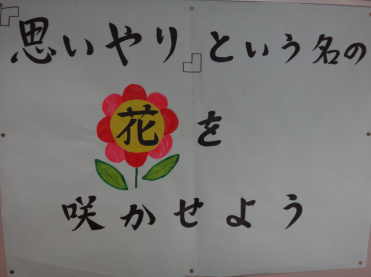 「思いやり」という名の
花を
咲かせよう